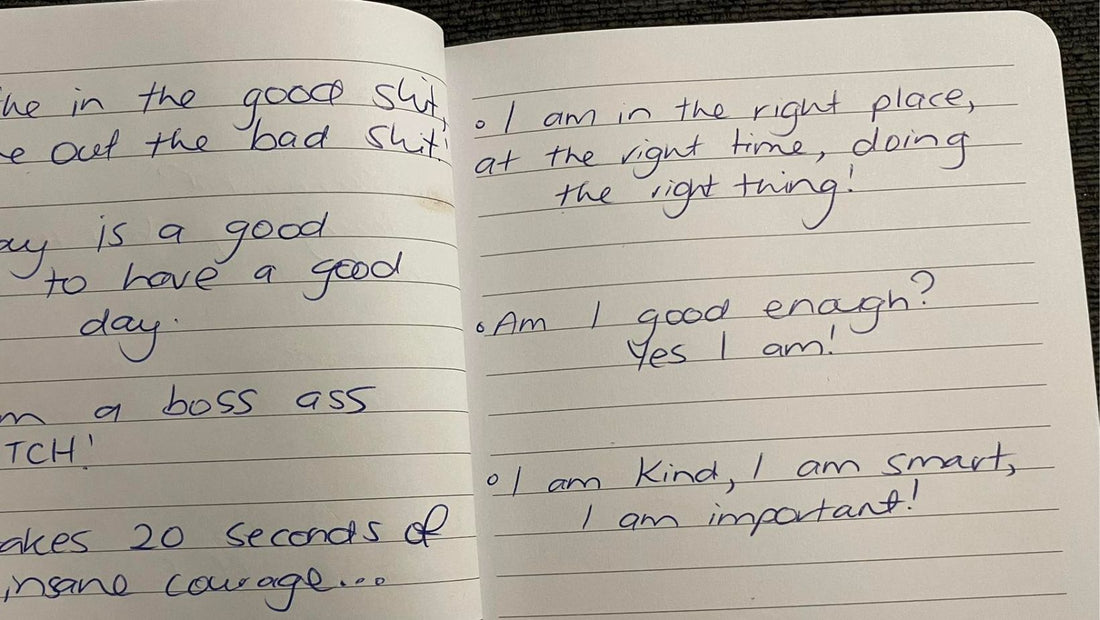 he in the good shit,
e out the bad shit!
ay is a good
to have a good
day.
m a boss ass
TCH!
akes 20 seconds of
insane courage...
• I am in the right place,
at the right time, doing
the right thing!
• Am I good enough?
Yes I am!
• I am kind, I am smart,
I am important!